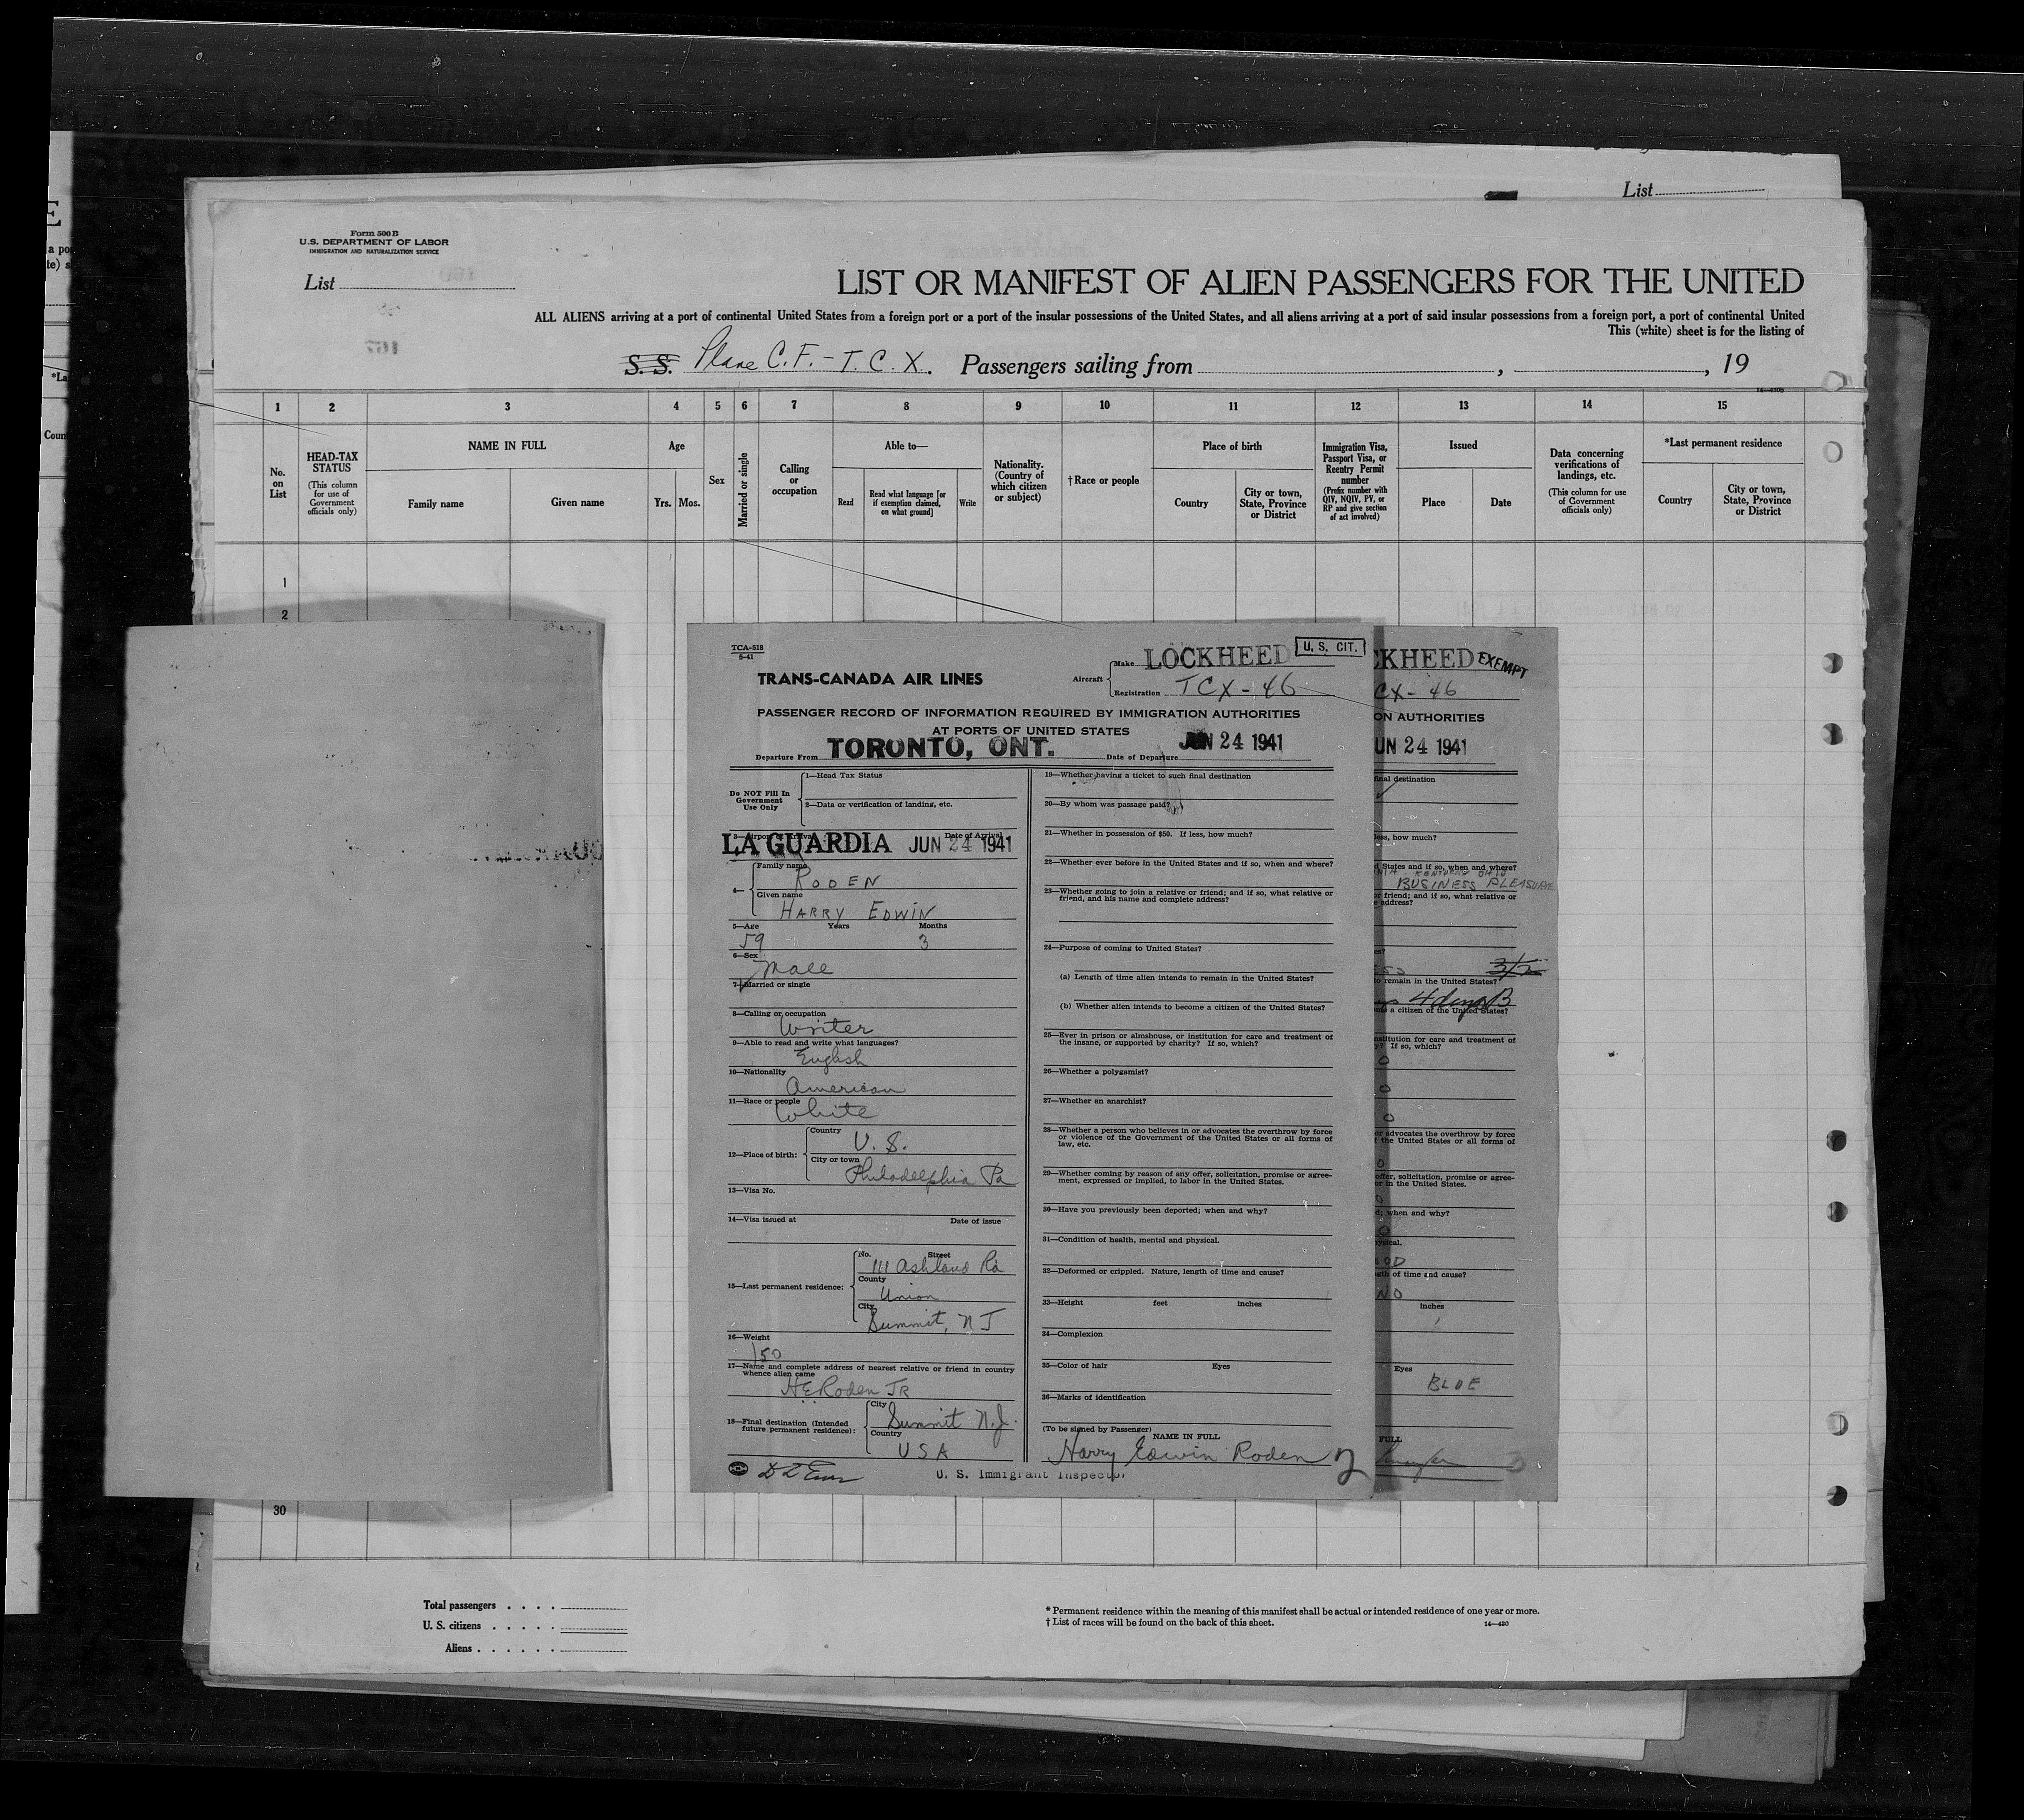 List
Form 500 B
U.S. DEPARTMENT OF LABOR
IMMIGRATION AND NATURALIZATION SERVICE
List
LIST OR MANIFEST OF ALIEN PASSENGERS FOR THE UNITED
ALL ALIENS arriving at a port of continental United States from a foreign port or a port of the insular possessions of the United States, and all aliens arriving at a port of said insular possessions from a foreign port, a port of continental United
This (white) sheet is for the listing of
S. S. Plane C. F. - T. C. X. Passengers sailing from , , 19
1 2 3 4 5 6 7 8 9 10 11 12 13 14 15
No. on List
HEAD-TAX STATUS
(This column for use of Government officials only)
NAME IN FULL
Family name Given name
Age
Yrs. Mos.
Sex
Married or single
Calling or occupation
Able to—
Read
Read what language [or if exemption claimed, on what ground]
Write
Nationality. (Country of which citizen or subject)
†Race or people
Place of birth
Country
City or town, State, Province or District
Immigration Visa, Passport Visa, or Reentry Permit number
(Prefix number with QIV, NQIV, PV, or RP and give section of act involved)
Issued
Place Date
Data concerning verifications of landings, etc.
(This column for use of Government officials only)
*Last permanent residence
Country
City or town, State, Province or District
1
2
30
TCA-518
5-41
TRANS-CANADA AIR LINES
Aircraft
Make LOCKHEED
U. S. CIT.
Registration TCX - 46
PASSENGER RECORD OF INFORMATION REQUIRED BY IMMIGRATION AUTHORITIES
AT PORTS OF UNITED STATES
Departure From TORONTO, ONT. Date of Departure JUN 24 1941
Do NOT Fill In Government Use Only
1—Head Tax Status
2—Data or verification of landing, etc.
3—Airport of Arrival Date of Arrival
LA GUARDIA JUN 24 1941
4—
Family name
RODEN
Given name
HARRY EDWIN
5—Age Years Months
59 3
6—Sex
Male
7—Married or single
8—Calling or occupation
Writer
9—Able to read and write what languages?
English
10—Nationality
American
11—Race or people
White
12—Place of birth:
Country
U. S.
City or town
Philadelphia Pa
13—Visa No.
14—Visa issued at Date of issue
15—Last permanent residence:
No. Street
111 Ashland Rd
County
Union
City
Summit, NJ
16—Weight
150
17—Name and complete address of nearest relative or friend in country
whence alien came
HE Roden JR
18—Final destination (Intended
future permanent residence):
City
Summit N.J.
Country
USA
U. S. Immigrant Inspector
19—Whether having a ticket to such final destination
20—By whom was passage paid?
21—Whether in possession of $50. If less, how much?
22—Whether ever before in the United States and if so, when and where?
23—Whether going to join a relative or friend; and if so, what relative or
friend, and his name and complete address?
24—Purpose of coming to United States?
(a) Length of time alien intends to remain in the United States?
(b) Whether alien intends to become a citizen of the United States?
25—Ever in prison or almshouse, or institution for care and treatment of
the insane, or supported by charity? If so, which?
26—Whether a polygamist?
27—Whether an anarchist?
28—Whether a person who believes in or advocates the overthrow by force
or violence of the Government of the United States or all forms of
law, etc.
29—Whether coming by reason of any offer, solicitation, promise or agree-
ment, expressed or implied, to labor in the United States.
30—Have you previously been deported; when and why?
31—Condition of health, mental and physical.
32—Deformed or crippled. Nature, length of time and cause?
33—Height feet inches
34—Complexion
35—Color of hair Eyes
36—Marks of identification
(To be signed by Passenger)
NAME IN FULL
Harry Edwin Roden 2
CKHEED EXEMPT
CX - 46
ON AUTHORITIES
UN 24 1941
final destination
less, how much?
States and if so, when and where?
KENTUCKY OHIO
BUSINESS PLEASURE
or friend; and if so, what relative or
address?
to remain in the United States?
4 days B
a citizen of the United States?
institution for care and treatment of
If so, which?
or advocates the overthrow by force
the United States or all forms of
offer, solicitation, promise or agree-
or in the United States.
when and why?
physical.
OD
length of time and cause?
NO
inches
Eyes
BLUE
FULL
3
Total passengers
U. S. citizens
Aliens
* Permanent residence within the meaning of this manifest shall be actual or intended residence of one year or more.
† List of races will be found on the back of this sheet.
14—430